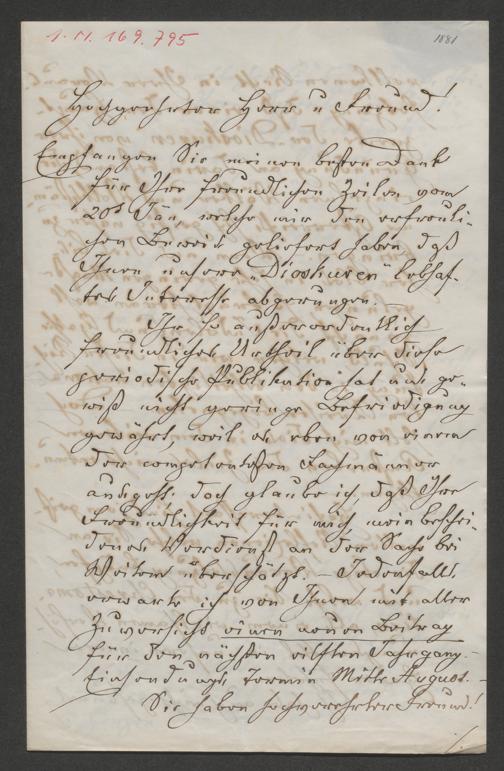 I. N. 169.795
1881
Hochgeehrter Herr u Freund!
Empfangen Sie meinen besten Dank
für Ihre freundlichen Zeilen vom
20t Jän, welche mir den erfreuli-
chen Beweis geliefert haben, daß
Ihnen unsere „Dioskuren" lebhaf-
tes Interesse abgerungen. —
Ihr so außerordentlich
freundliches Urtheil über diese
periodische Publikation hat uns ge-
wiß nicht geringe Befriedigung
gewährt, weil es eben von einem
der competentesten Fachmänner
ausgeht, doch glaube ich, daß Ihre
Freundlichkeit für mich mein beschei-
denes Verdienst an der Sache bei
Weitem überschätzt. — Jedenfalls
erwarte ich von Ihnen mit aller
Zuversicht einen neuen Beitrag
für den nächsten eilften Jahrgang. —
Einsendungs termin Mitte August. —
Sie haben hochverehrter Freund!
./.